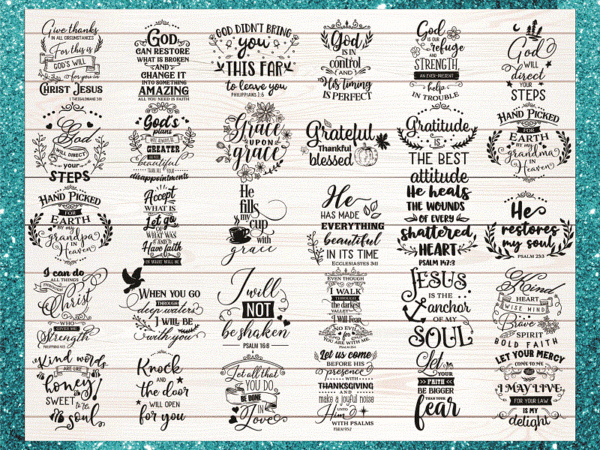 Give thanks
IN ALL CIRCUMSTANCES
For this is
GOD'S WILL
for you in
CHRIST JESUS
1 THESSALONIANS 5:18
GOD
CAN RESTORE
WHAT IS BROKEN
AND
CHANGE IT
INTO SOMETHING
AMAZING
ALL YOU NEED IS FAITH
GOD DIDN'T BRING
you
THIS FAR
to leave you
PHILIPPIANS 1:6
God
IS IN
control
AND
His timing
IS PERFECT
God
IS OUR
refuge
AND
STRENGTH,
AN EVER-PRESENT
help
IN TROUBLE
God
WILL
direct
YOUR
STEPS
God
WILL
DIRECT
your
STEPS
God's
plans
WILL ALWAYS BE
GREATER
AND MORE
beautiful
THAN ALL YOUR
disappointments
Grace
UPON
grace
Grateful
Thankful
blessed
Gratitude
IS
THE BEST
attitude
HAND PICKED
FOR
EARTH
BY MY
grandma
IN
Heaven
HAND PICKED
FOR
EARTH
BY MY
Grandpa
IN
Heaven
Accept
WHAT IS
Let go
OF
WHAT WAS
AND
Have faith
IN WHAT WILL BE
He
fills
my
cup
with
grace
He
HAS MADE
EVERYTHING
beautiful
IN ITS TIME
ECCLESIASTES 3:11
HE HEALS
THE WOUNDS
OF EVERY
shattered
HEART
PSALM 147:3
He
restores
my soul
PSALM 23:3
I can do
ALL THINGS
THROUGH
Christ
WHO
GIVES ME
Strength
WHEN YOU GO
THROUGH
deep waters
I WILL BE
with you
I will
NOT
be shaken
PSALM 16:8
EVEN THOUGH
I WALK
THROUGH
the darkest
valley
I Will Fear
NO EVIL
for
YOU ARE WITH ME
JESUS
IS THE
anchor
OF MY
SOUL
Kind
HEART
WISE MIND
Brave
SPIRIT
BOLD FAITH
Kind words
ARE LIKE
honey
SWEET TO THE
soul
KNOCK
AND
the door
WILL OPEN
for you
Let all that
YOU DO
BE DONE
IN
Love
Let us come
BEFORE HIS
presence
WITH
THANKSGIVING
make a joyful noise
UNTO
Him
WITH PSALMS
PSALM 95:2
Let
YOUR
FAITH
BE BIGGER
THAN YOUR
fear
LET YOUR MERCY
COME TO ME
THAT
I MAY LIVE,
FOR YOUR LAW
IS MY
delight